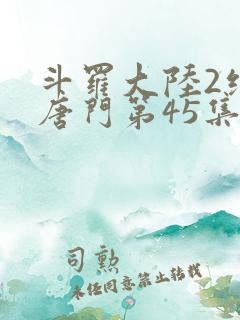 斗羅大陸2
唐門第45集
司勲
未经同意禁止转载